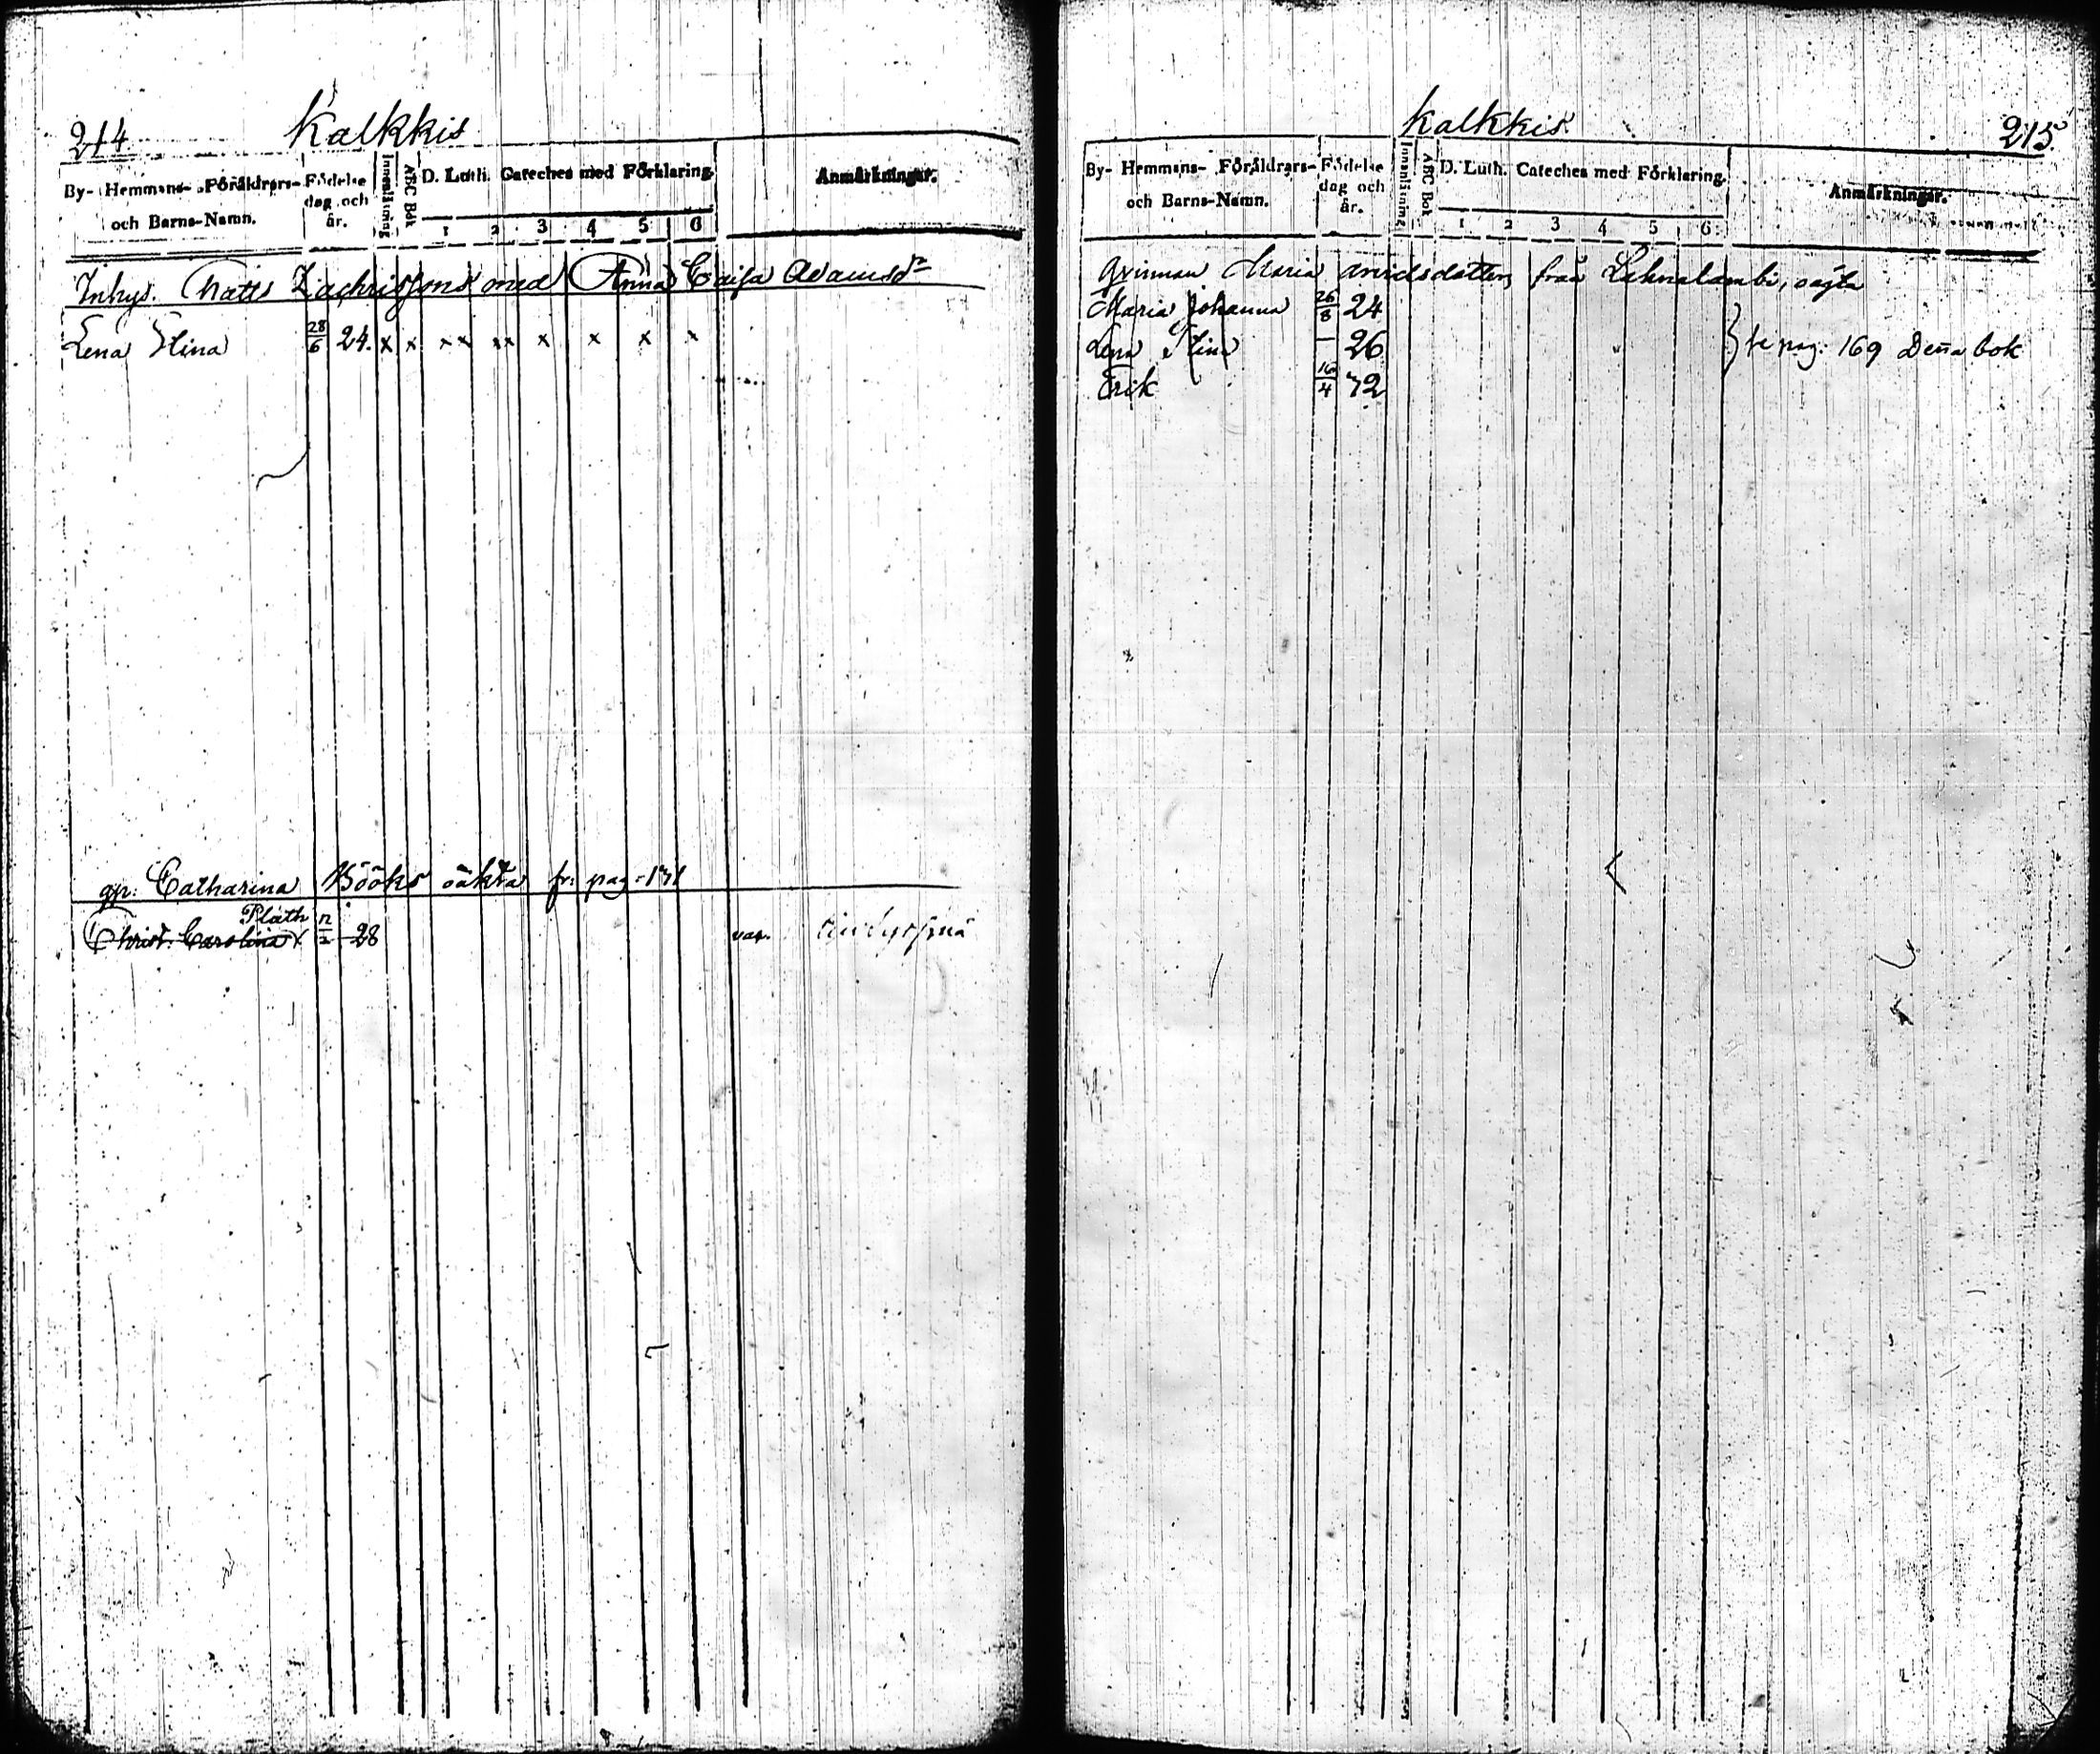 214
Kalkkis
By- Hemmans- Föräldrars- och Barns-Namn.
Födelse dag och år.
Innanläsning
ABC Bok
D. Luth. Cateches med Förklaring.
1 2 3 4 5 6
Anmärkningar.
Inhys. Matts Zachrissons med Anna Caisa Adamsdr
Lena Stina 28/6 24. x x xx xx x x x x
gp: Catharina Bööks oäkta fr: pag: 171
Plath
Christ. Carolina n/2 28 vac.
Kalkkis
215
By- Hemmans- Föräldrars- och Barns-Namn.
Födelse dag och år.
Innanläsning
ABC Bok
D. Luth. Cateches med Förklaring.
1 2 3 4 5 6
Anmärkningar.
Qvinnan Maria Arvidsdotters från Lahnalambi, oägta
Maria Johanna 26/8 24
Lena Stina — 26 } se pag: 169 Dena bok
Erik 16/4 32